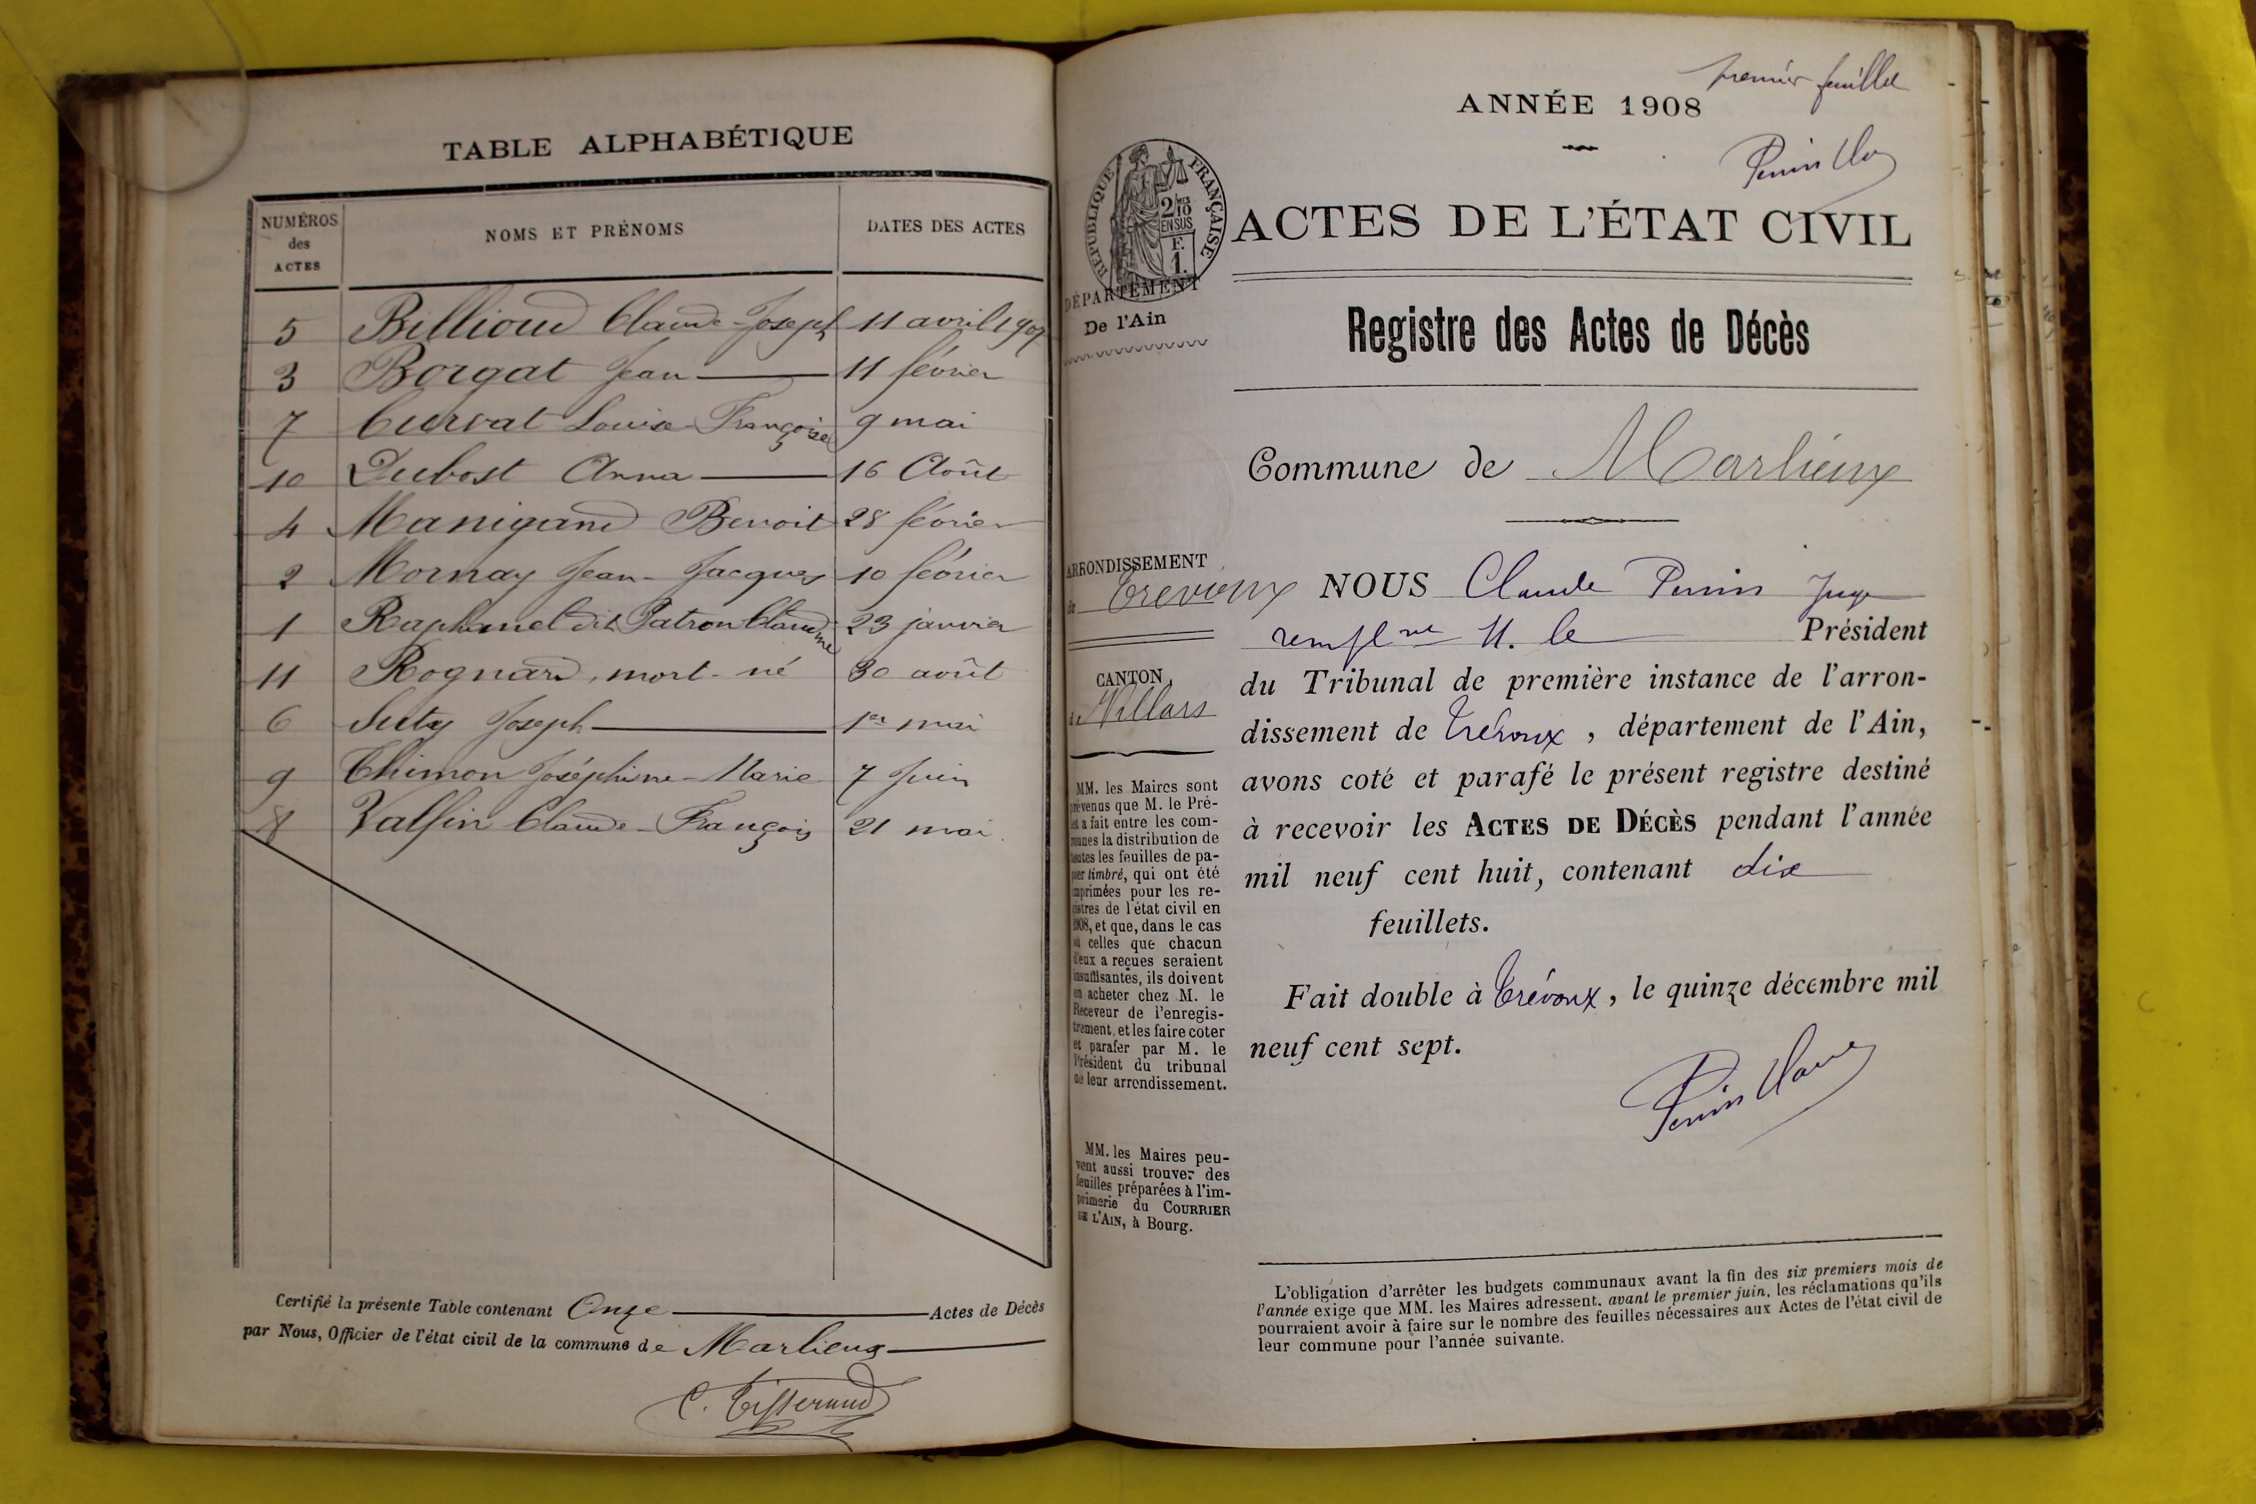 TABLE ALPHABÉTIQUE
NUMÉROS des ACTES NOMS ET PRÉNOMS DATES DES ACTES
5 Billioud Claude-Joseph 11 avril 1907
3 Borgat Jean 11 février
7 Curvat Louise Françoise 9 mai
10 Dubost Anna 16 Août
4 Manigand Benoit 28 février
2 Mornay Jean-Jacques 10 février
1 Raphanel dit Patron Claudine 23 janvier
11 Rognard, mort-né 30 août
6 Suty Joseph 1er mai
9 Thimon Joséphine-Marie 7 Juin
8 Valfin Claude-François 21 mai.
Certifié la présente Table contenant Onze Actes de Décès
par Nous, Officier de l'état civil de la commune de Marlieux
C. Tisserand
premier feuillet
ANNÉE 1908
Perrin
RÉPUBLIQUE FRANÇAISE
2/10
EN SUS
F.
1.
ACTES DE L'ÉTAT CIVIL
DÉPARTEMENT
De l'Ain
Registre des Actes de Décès
Commune de Marlieux
ARRONDISSEMENT
de Trévoux
CANTON
de Villars
MM. les Maires sont
prévenus que M. le Pré-
fet a fait entre les com-
munes la distribution de
toutes les feuilles de pa-
pier timbré, qui ont été
imprimées pour les re-
gistres de l'état civil en
1908, et que, dans le cas
où celles que chacun
d'eux a reçues seraient
insuffisantes, ils doivent
en acheter chez M. le
Receveur de l'enregis-
trement, et les faire coter
et parafer par M. le
Président du tribunal
de leur arrondissement.
MM. les Maires peu-
vent aussi trouver des
feuilles préparées à l'im-
primerie du COURRIER
DE L'AIN, à Bourg.
NOUS Claude Perrin Juge
rempl nt M. le Président
du Tribunal de première instance de l'arron-
dissement de Trévoux, département de l'Ain,
avons coté et parafé le présent registre destiné
à recevoir les ACTES DE DÉCÈS pendant l'année
mil neuf cent huit, contenant dix
feuillets.
Fait double à Trévoux, le quinze décembre mil
neuf cent sept.
Perrin Claude
L'obligation d'arrêter les budgets communaux avant la fin des six premiers mois de
l'année exige que MM. les Maires adressent, avant le premier juin, les réclamations qu'ils
pourraient avoir à faire sur le nombre des feuilles nécessaires aux Actes de l'état civil de
leur commune pour l'année suivante.